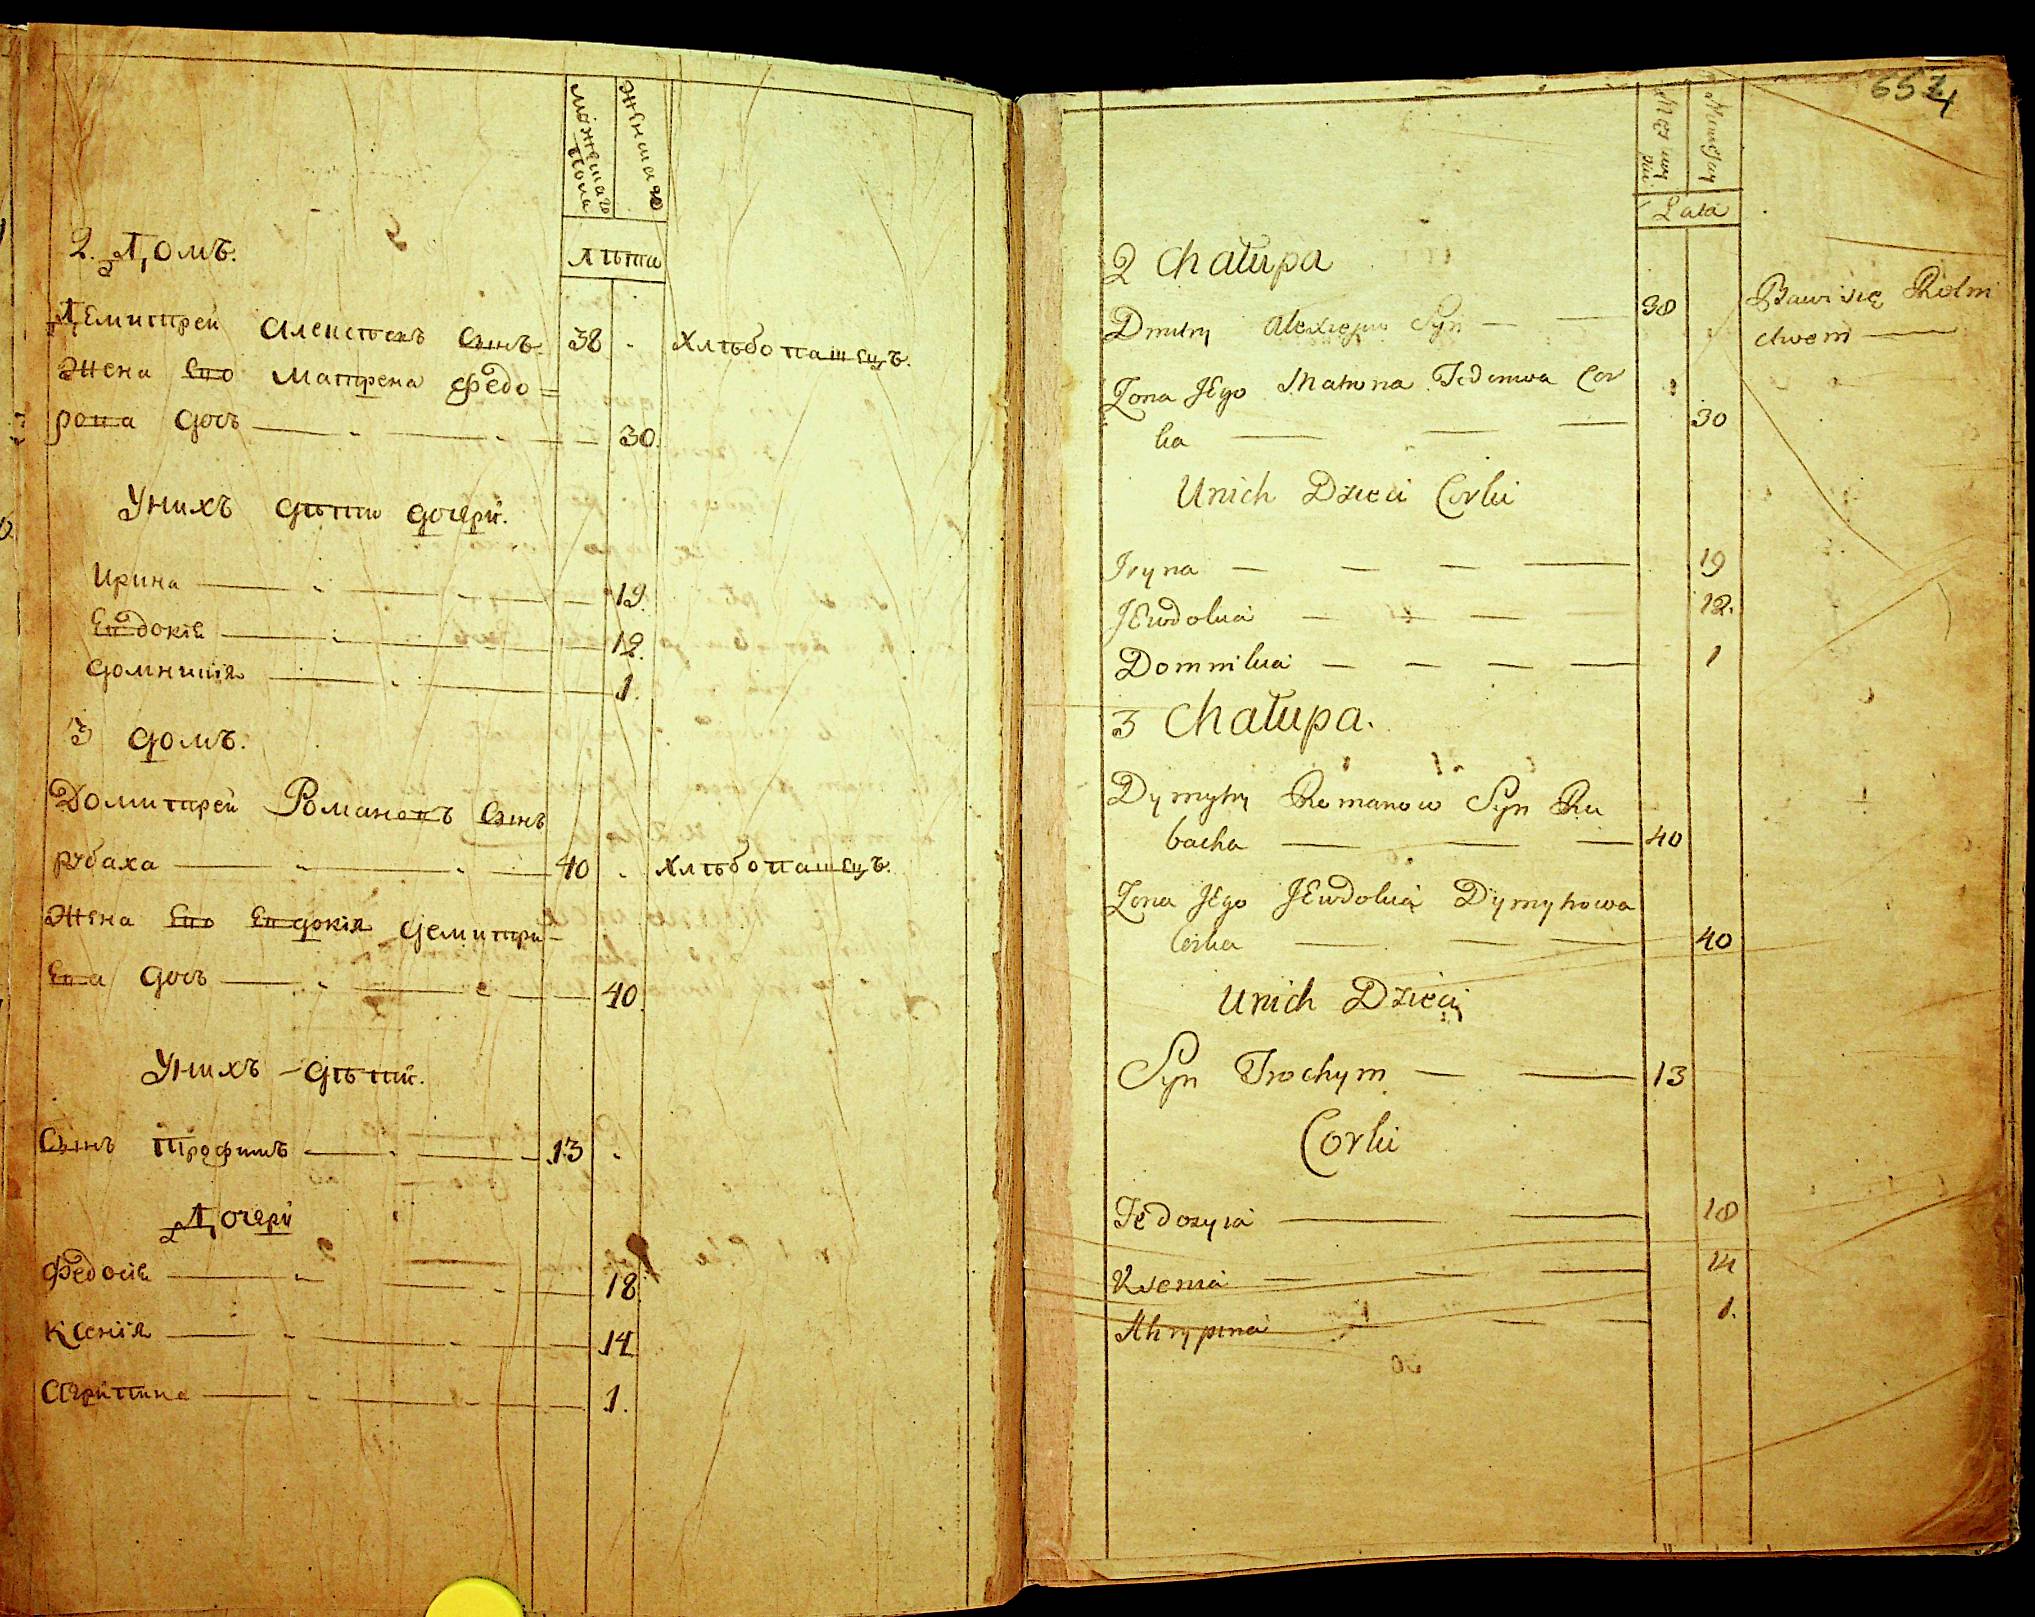 можеска пола
женска го
лѣта
2. Домъ.
Демитрей Алексѣевъ сынъ 38 Хлѣбопашецъ.
Жена Его Матрена Федо=
рова дочъ 30.
Унихъ дѣти дочери.
Ирина 19.
Евдокія 12.
Домникія 1.
3 домъ.
Домитрей Романовъ Сынъ
рубаха 40 Хлѣбопашецъ.
Жена Его Евдокія Демитри-
Ева дочъ 40.
Унихъ дѣтй.
Сынъ Трофимъ 13
Дочери
Федосія 18.
Ксенія 14
Агрипина 1.
Lata
2 Chałupa
Dmitry Alexiejew Syn 38 Bawi się Rolni
ctwem
Zona JEgo Matrona Fedorowa Cor
ka 30
Unich Dzieci Corki
Iryna 19
JEwdokia 12.
Domnikia 1
3 Chałupa.
Dymytry Romanow Syn Ru
bacha 40
Zona JEgo JEwdokia Dymytrowa
Corka 40
Unich Dzieci
Syn Trochym 13
Corki
Fedozyia 18
Ksenia 14
Ahrypina 1.